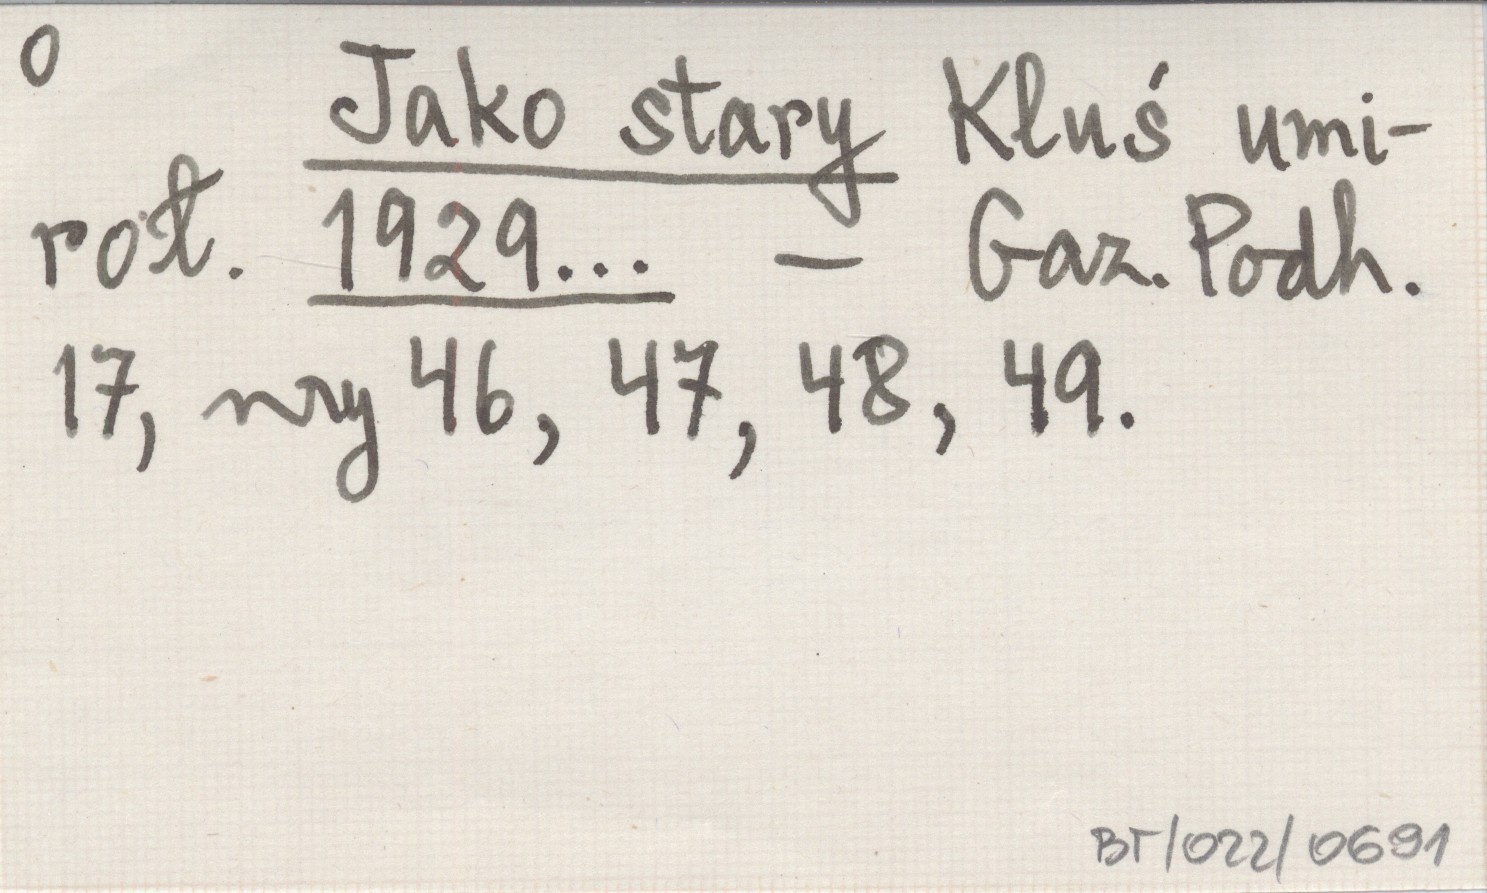 0
Jako stary Kluś umi-
roł. 1929... – Gaz. Podh.
17, nry 46, 47, 48, 49.
BT/022/0691